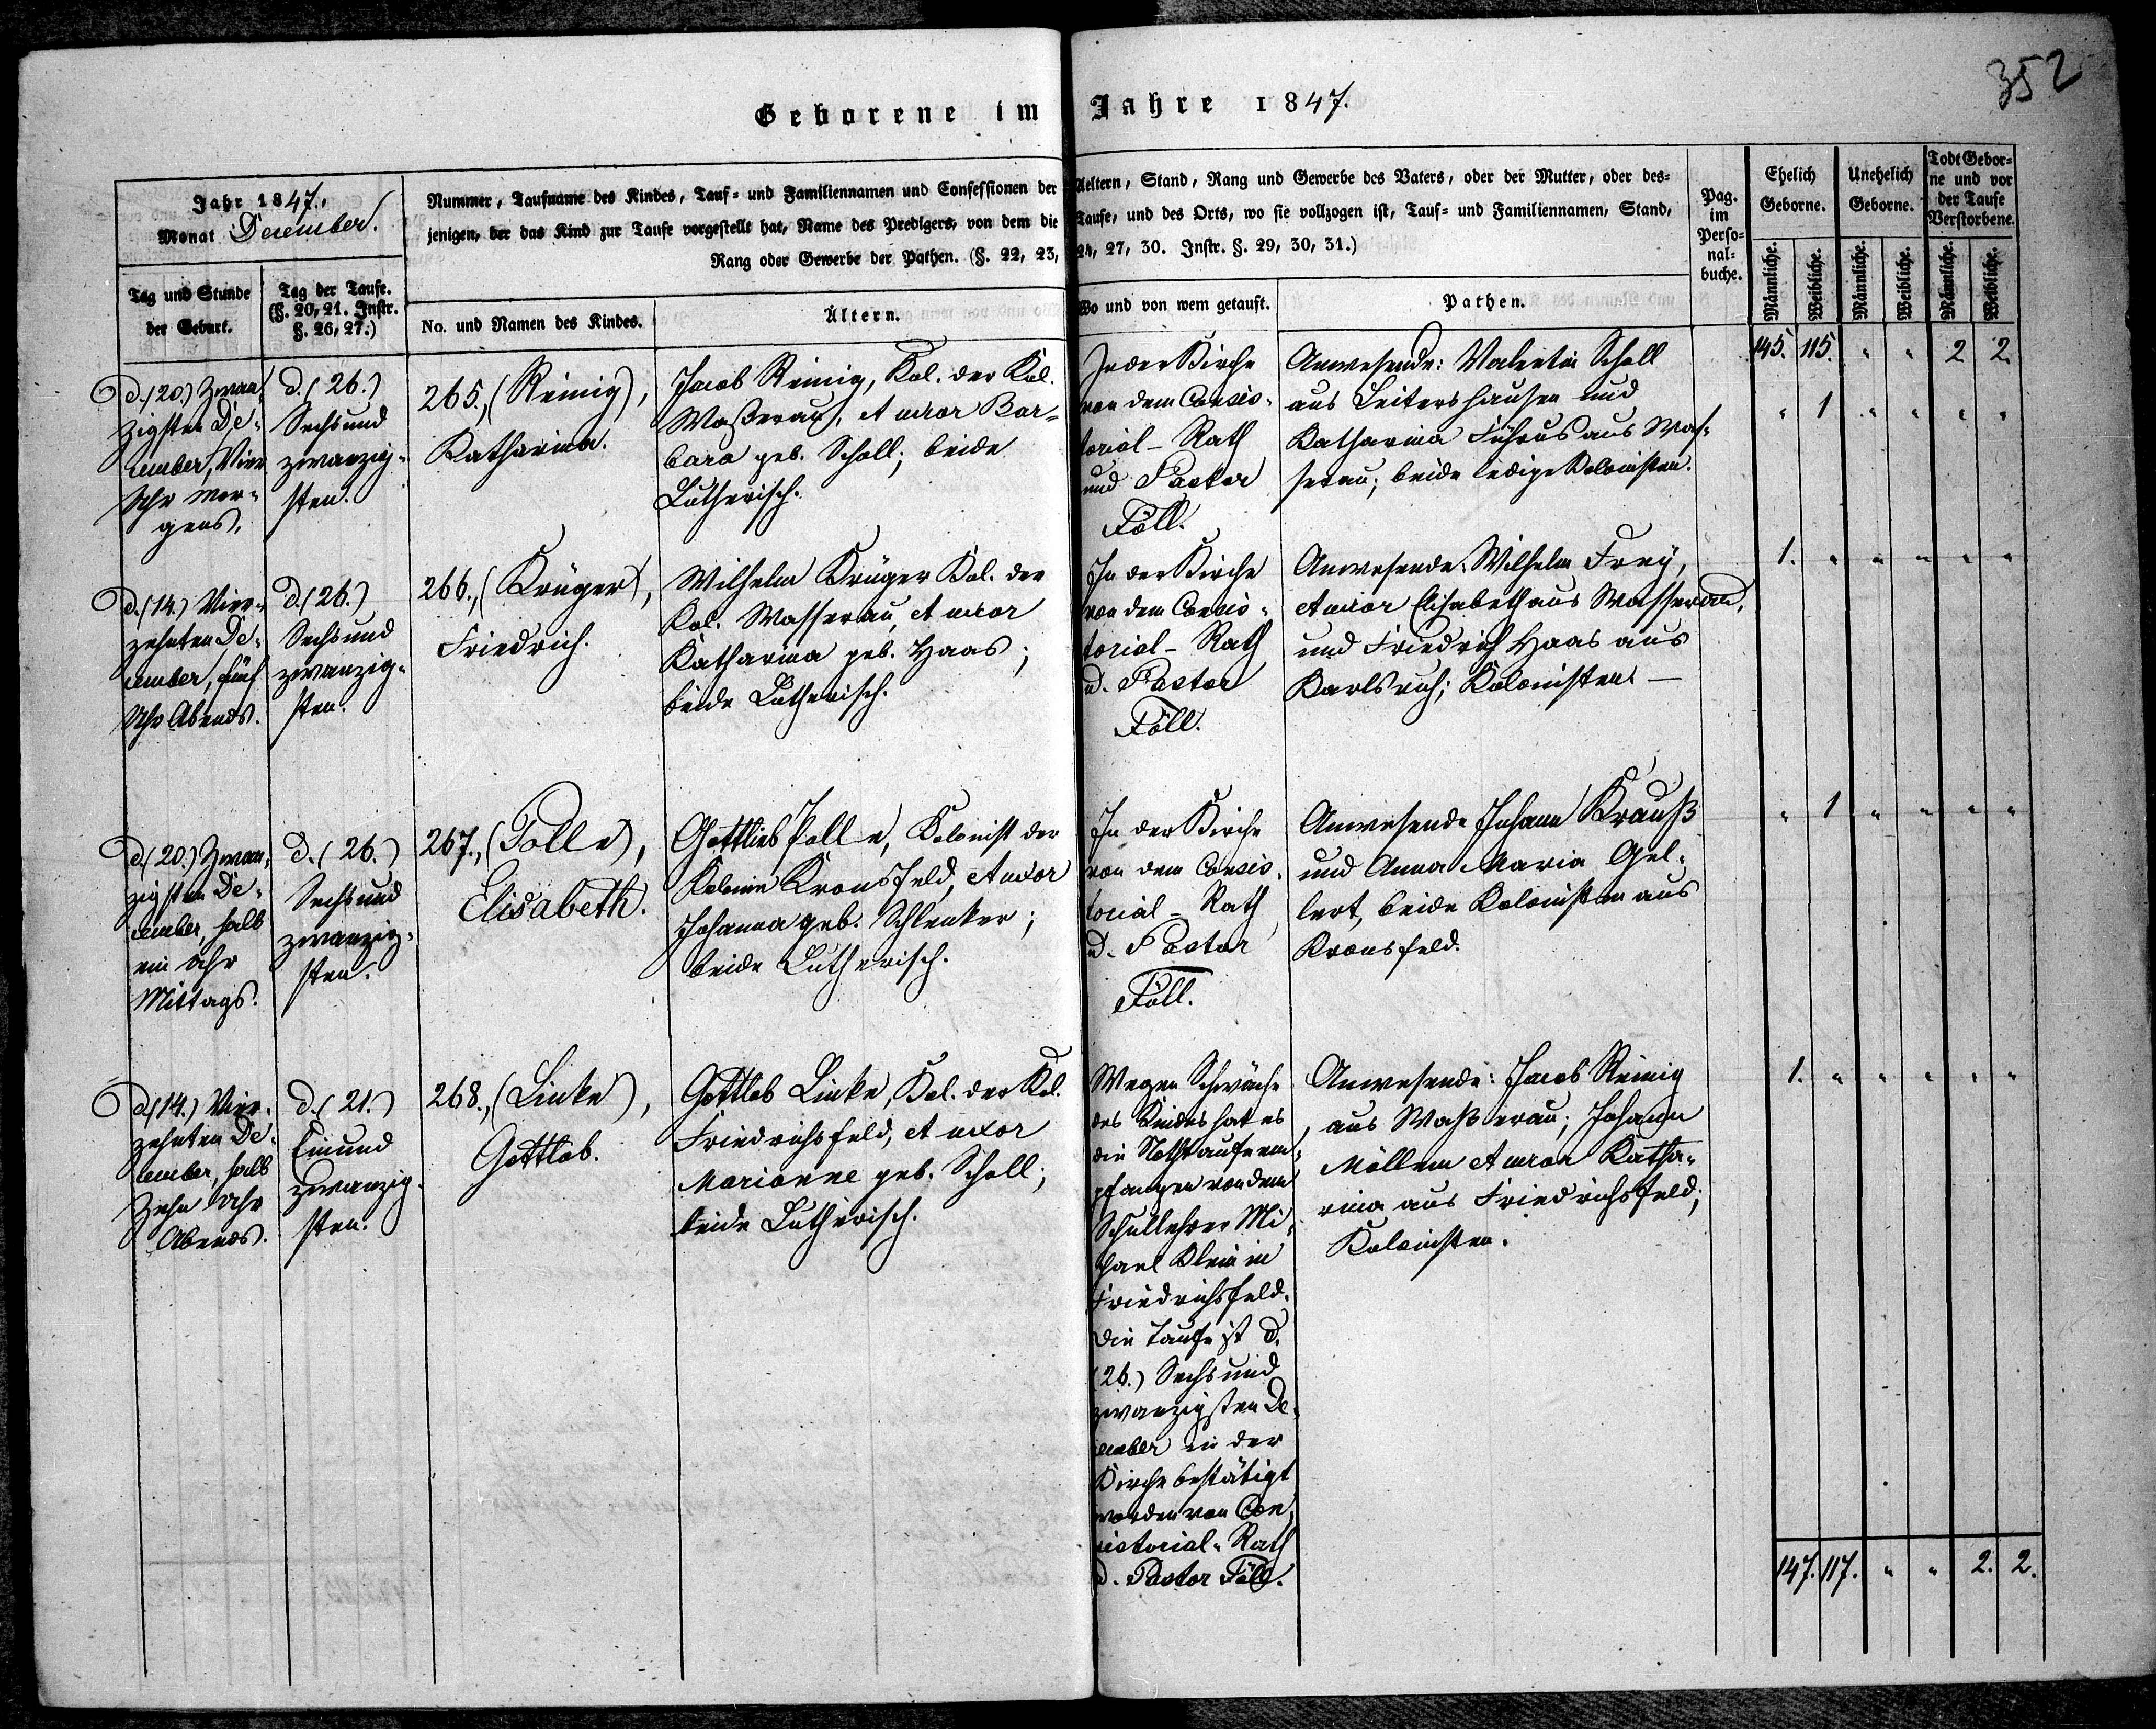 352
Geborene im Jahre 1847.
Jahr 1847.,
Monat December.
Tag und Stunde
der Geburt.
Tag der Taufe.
(§. 20, 21. Instr.
§. 26, 27.)
Nummer, Taufname des Kindes, Tauf- und Familiennamen und Confessionen der Aeltern, Stand, Rang und Gewerbe des Vaters, oder der Mutter, oder des-
jenigen, der das Kind zur Taufe vorgestellt hat, Name des Predigers, von dem die Taufe, und des Orts, wo sie vollzogen ist, Tauf- und Familiennamen, Stand,
Rang oder Gewerbe der Pathen. (§. 22, 23, 24, 27, 30. Instr. §. 29, 30, 31.)
No. und Namen des Kindes.
Ältern.
Wo und von wem getauft.
Pathen.
Pag.
im
Perso-
nal-
buche.
Ehelich
Geborne.
Unehelich
Geborne.
Todt Gebor-
ne und vor
der Taufe
Verstorbene.
Männliche.
Weibliche.
Männliche.
Weibliche.
Männliche.
Weibliche.
145. 115. " " 2 2
d. (20.) Zwan-
zigsten De-
cember, Vier
Uhr Mor-
gens.
d. (26.)
Sechsund
zwanzig-
sten.
265., (Reinig),
Katharina.
Jacob Reinig, Kol. der Kol.
Waßerau, et uxor Bar-
bara geb. Scholl; beide
Lutherisch.
In der Kirche
von dem Consis-
torial-Rath
und Pastor
Föll.
Anwesende: Valentin Scholl
aus Leitershausen und
Katharina Führus aus Was-
serau; beide ledige Kolonisten.
" 1 " " " "
d. (14.) Vier-
zehnten De-
cember, fünf
Uhr Abends.
d. (26.)
Sechsund
zwanzig-
sten.
266., (Krüger),
Friedrich.
Wilhelm Krüger Kol. der
Kol. Wasserau, et uxor
Katharina geb. Haas;
beide Lutherisch.
In der Kirche
von dem Consis-
torial-Rath
u. Pastor
Föll.
Anwesende: Wilhelm Frey,
et uxor Elisabeth aus Wasserau,
und Friedrich Haas aus
Karlsruh; Kolonisten. —
1. " " " " "
d. (20.) Zwan-
zigsten De-
cember, halb
ein Uhr
Mittags.
d. (26.)
Sechsund
zwanzig-
sten.
267., (Polle),
Elisabeth.
Gottlieb Polle, Kolonist der
Kolonie Kronsfeld, et uxor
Johanna geb. Schlenker;
beide Lutherisch.
In der Kirche
von dem Consis-
torial-Rath
u. Pastor
Föll.
Anwesende Johann Krauß
und Anna Maria Gel-
lert, beide Kolonisten aus
Kronsfeld.
" 1 " " " "
d. (14.) Vier-
zehnten De-
cember, halb
Zehn Uhr
Abends.
d. (21.)
Einund
zwanzig-
sten.
268., (Linke),
Gottlob.
Gottlob Linke, Kol. der Kol.
Friedrichsfeld, et uxor
Marianne geb. Scholl;
beide Lutherisch.
Wegen Schwäche
des Kindes hat es
die Nothtaufe em-
pfangen von dem
Schullehrer Mi-
chael Klein in
Friedrichsfeld.
Die Taufe ist d.
(26.) Sechsund
zwanzigsten De-
cember in der
Kirche bestätigt
worden von Con-
sistorial-Rath
u. Pastor Föll.
Anwesende: Jacob Reinig
aus Waßerau; Johann
et uxor Katha-
rina aus Friedrichsfeld;
Kolonisten.
1. " " " " "
147. 117. " " 2. 2.